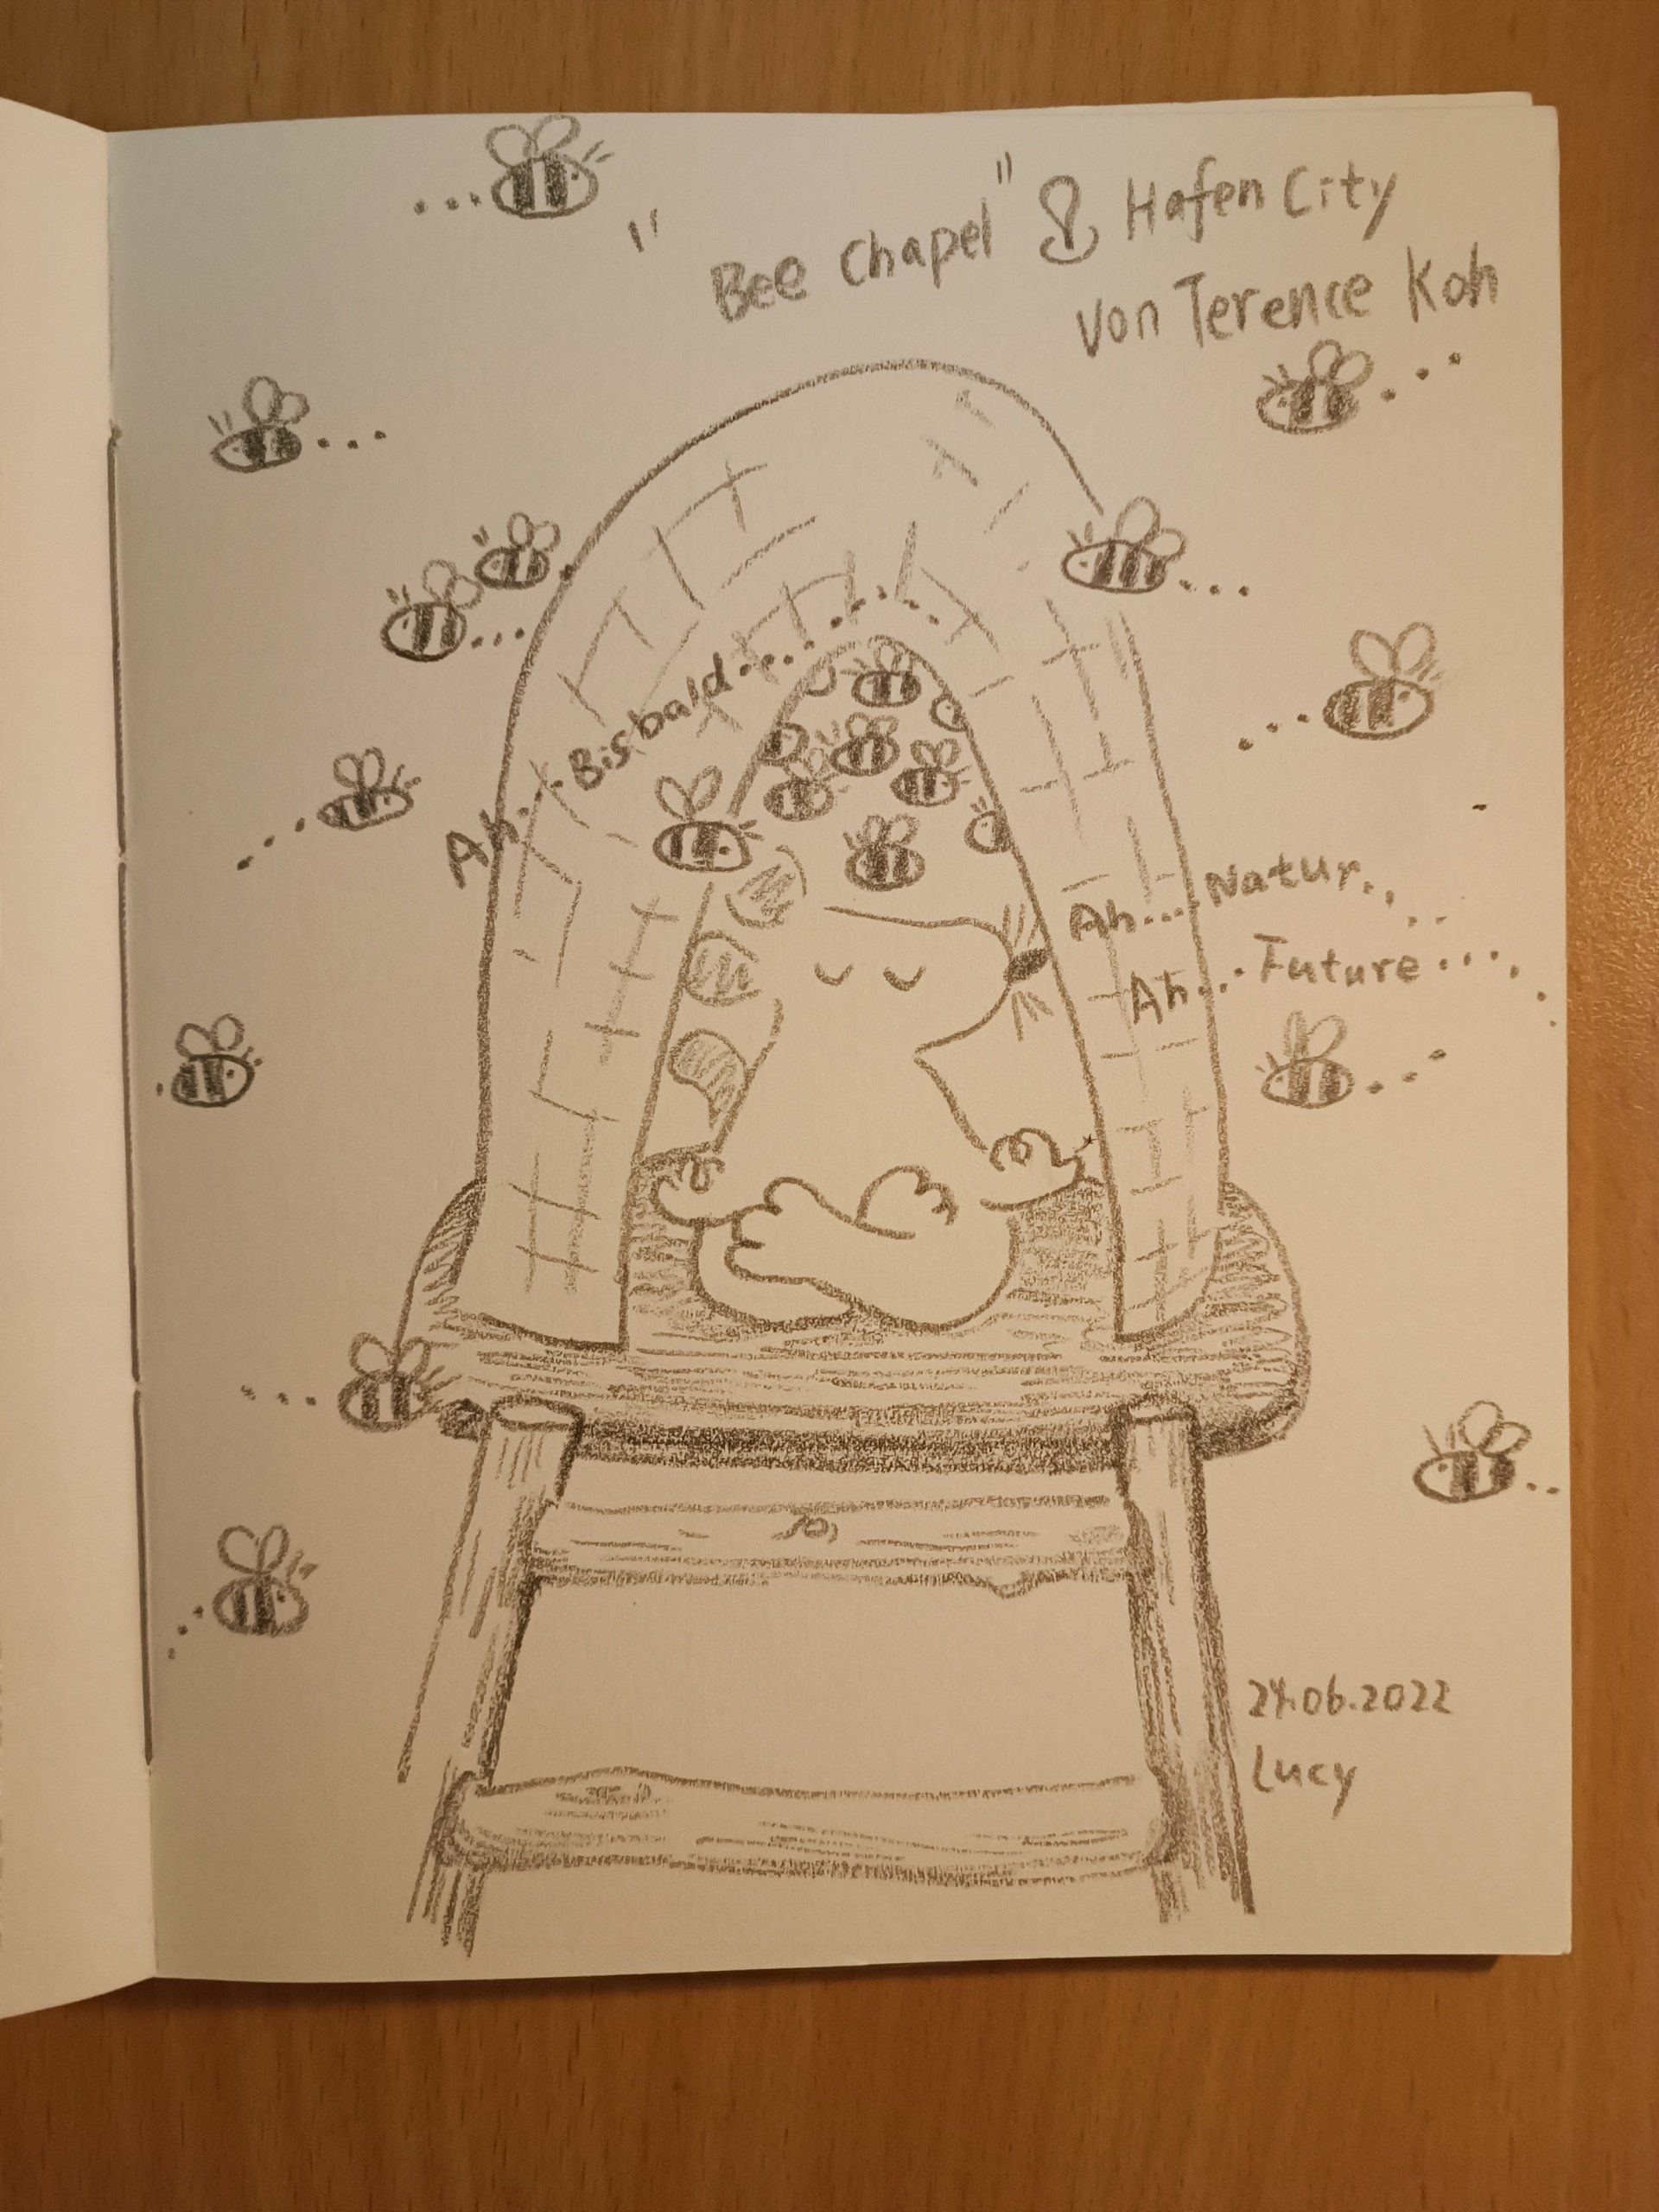 "Bee Chapel" Hafen City
von Terence Koh
Ah... Bisbald......
Ah.... Natur....
Ah... Future.....
24.06.2022
Lucy